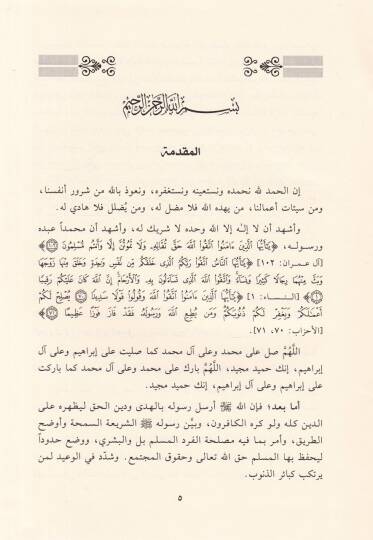 بسم الله الرحمن الرحيم
المقدمة
إن الحمد لله نحمده ونستعينه ونستغفره، ونعوذ بالله من شرور أنفسنا،
ومن سيئات أعمالنا، من يهده الله فلا مضل له، ومن يُضلل فلا هادي له.
وأشهد أن لا إلٰه إلا الله وحده لا شريك له، وأشهد أن محمداً عبده
ورسوله، ﴿يَٰٓأَيُّهَا ٱلَّذِينَ ءَامَنُوا۟ ٱتَّقُوا۟ ٱللَّهَ حَقَّ تُقَاتِهِۦ وَلَا تَمُوتُنَّ إِلَّا وَأَنتُم مُّسْلِمُونَ ﴿١٠٢﴾﴾
[آل عمران: ١٠٢] ﴿يَٰٓأَيُّهَا ٱلنَّاسُ ٱتَّقُوا۟ رَبَّكُمُ ٱلَّذِى خَلَقَكُم مِّن نَّفْسٍ وَٰحِدَةٍ وَخَلَقَ مِنْهَا زَوْجَهَا
وَبَثَّ مِنْهُمَا رِجَالًا كَثِيرًا وَنِسَآءً وَٱتَّقُوا۟ ٱللَّهَ ٱلَّذِى تَسَآءَلُونَ بِهِۦ وَٱلْأَرْحَامَ إِنَّ ٱللَّهَ كَانَ عَلَيْكُمْ رَقِيبًا
﴿١﴾﴾ [النساء: ١] ﴿يَٰٓأَيُّهَا ٱلَّذِينَ ءَامَنُوا۟ ٱتَّقُوا۟ ٱللَّهَ وَقُولُوا۟ قَوْلًا سَدِيدًا ﴿٧٠﴾ يُصْلِحْ لَكُمْ
أَعْمَٰلَكُمْ وَيَغْفِرْ لَكُمْ ذُنُوبَكُمْ وَمَن يُطِعِ ٱللَّهَ وَرَسُولَهُۥ فَقَدْ فَازَ فَوْزًا عَظِيمًا ﴿٧١﴾﴾
[الأحزاب: ٧٠، ٧١].
اللَّهُمَّ صل على محمد وعلى آل محمد كما صليت على إبراهيم وعلى آل
إبراهيم، إنك حميد مجيد، اللَّهُمَّ بارك على محمد وعلى آل محمد كما باركت
على إبراهيم وعلى آل إبراهيم، إنك حميد مجيد.
أما بعد؛ فإن الله ﷻ أرسل رسوله بالهدى ودين الحق ليظهره على
الدين كله ولو كره الكافرون، وبيَّن رسوله ﷺ الشريعة السمحة وأوضح
الطريق، وأمر بما فيه مصلحة الفرد المسلم بل والبشري، ووضع حدوداً
ليحفظ بها المسلم حق الله تعالى وحقوق المجتمع. وشدّد في الوعيد لمن
يرتكب كبائر الذنوب.
٥